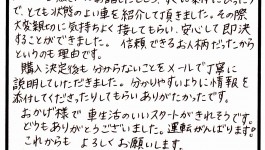 で、とても状態のよい車を紹介して頂きました。その際
大変親切に気持ちよく接してもらい、安心して即決
することができました。信頼できるお人柄だったから
というのも理由です。
購入決定後も分からないことをメールで丁寧に
説明していただきました。分かりやすいように情報を
添付してくださったりしてもらいありがたかったです。
おかげ様で車生活のいいスタートがきれそうです。
どうもありがとうございました。運転がんばります。
これからもよろしくお願いします。